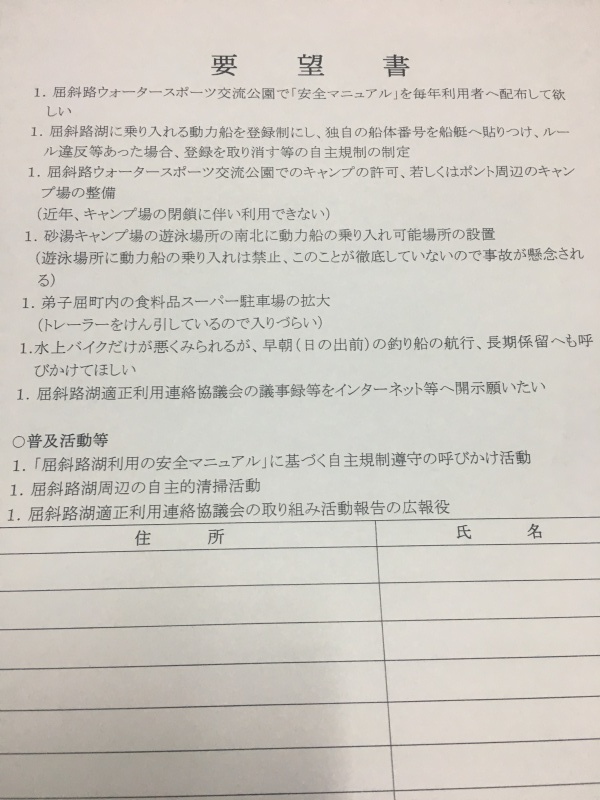 要望書
1. 屈斜路ウォータースポーツ交流公園で「安全マニュアル」を毎年利用者へ配布して欲
しい
1. 屈斜路湖に乗り入れる動力船を登録制にし、独自の船体番号を船艇へ貼りつけ、ルー
ル違反等あった場合、登録を取り消す等の自主規制の制定
1. 屈斜路ウォータースポーツ交流公園でのキャンプの許可、若しくはポント周辺のキャン
プ場の整備
(近年、キャンプ場の閉鎖に伴い利用できない)
1. 砂湯キャンプ場の遊泳場所の南北に動力船の乗り入れ可能場所の設置
(遊泳場所に動力船の乗り入れは禁止、このことが徹底していないので事故が懸念され
る)
1. 弟子屈町内の食料品スーパー駐車場の拡大
(トレーラーをけん引しているので入りづらい)
1.水上バイクだけが悪くみられるが、早朝(日の出前)の釣り船の航行、長期係留へも呼
びかけてほしい
1. 屈斜路湖適正利用連絡協議会の議事録等をインターネット等へ開示願いたい
○普及活動等
1. 「屈斜路湖利用の安全マニュアル」に基づく自主規制遵守の呼びかけ活動
1. 屈斜路湖周辺の自主的清掃活動
1. 屈斜路湖適正利用連絡協議会の取り組み活動報告の広報役
住所 氏名